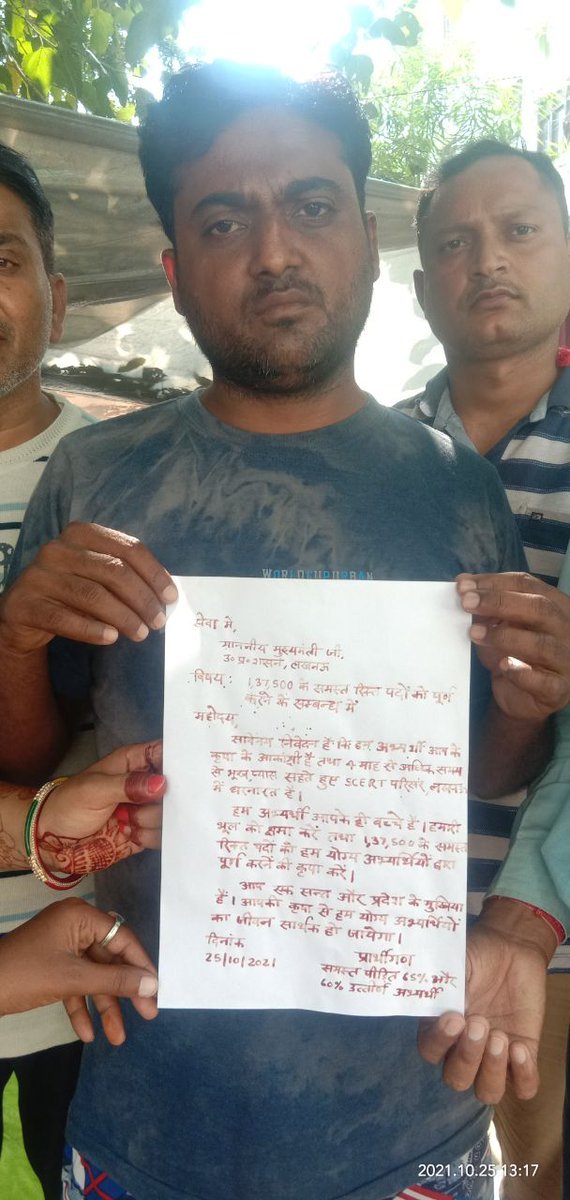 सेवा में,
माननीय मुख्यमंत्री जी,
उ० प्र० शासन, लखनऊ
विषय : 1,37,500 के समस्त रिक्त पदों को पूर्ण
करने के सम्बन्ध में
महोदय,
सविनय निवेदन है कि हम अभ्यर्थी आप के
कृपा के आकांक्षी हैं तथा 4 माह से अधिक समय
से भूख प्यास सहते हुए SCERT परिसर लखनऊ
में धरनारत है।
हम अभ्यर्थी आपके ही बच्चे हैं। हमारी
भूल को क्षमा करें तथा 1,37,500 के समस्त
रिक्त पदों को हम योग्य अभ्यर्थियों द्वारा
पूर्ण करने की कृपा करें।
आप एक सन्त और प्रदेश के मुखिया
हैं। आपकी कृपा से हम योग्य अभ्यर्थियों
का जीवन सार्थक हो जायेगा।
दिनांक
25/10/2021
प्रार्थीगण
समस्त पीड़ित 65% और
60% उत्तीर्ण अभ्यर्थी
2021.10.25 13:17